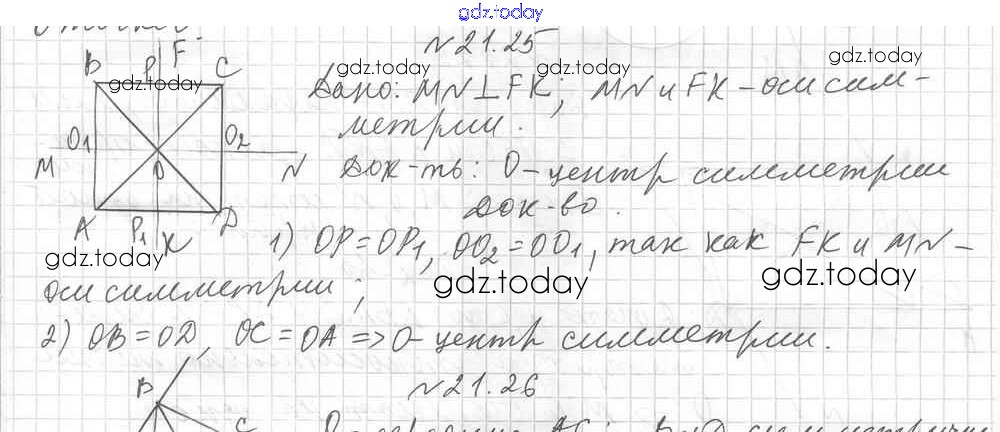 gdz.today
№21.25
B P F C
gdz.today
Дано: MN⊥FK; MN и FK – оси сим-
метрии.
gdz.today gdz.today gdz.today
O₁ O₂
M O N
Док-ть: O – центр симметрии
Док-во.
A P₁ K D
1) OP = OP₁, OO₂ = OO₁, так как FK и MN –
gdz.today gdz.today gdz.today
оси симметрии;
2) OB = OD, OC = OA => O – центр симметрии.
№21.26
B
C